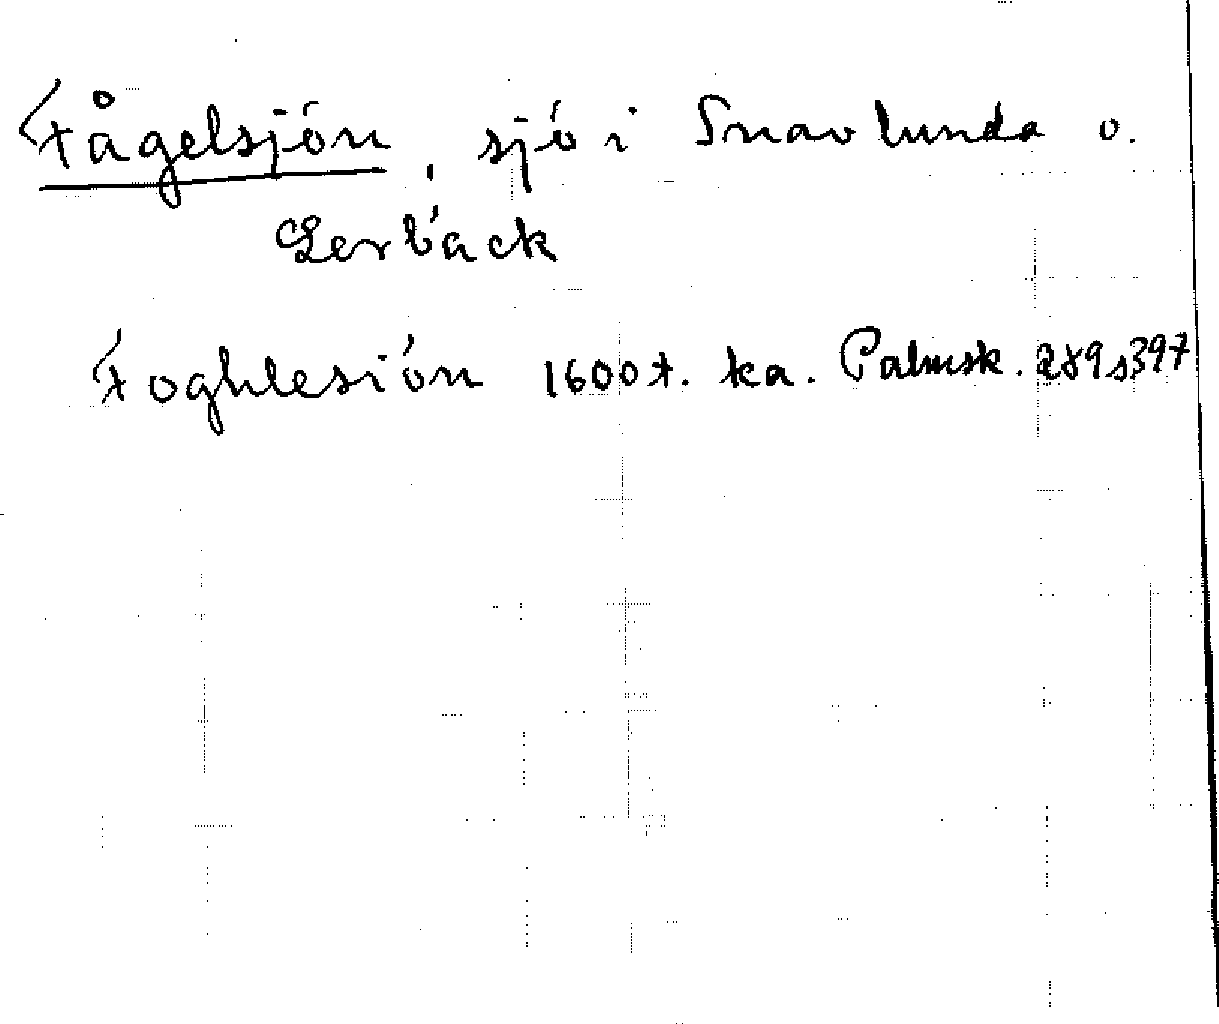 Fågelsjön, sjö i Snavlunda o.
Lerbäck
Foghlesión 1600t. ka. Palmsk. 289 s 397